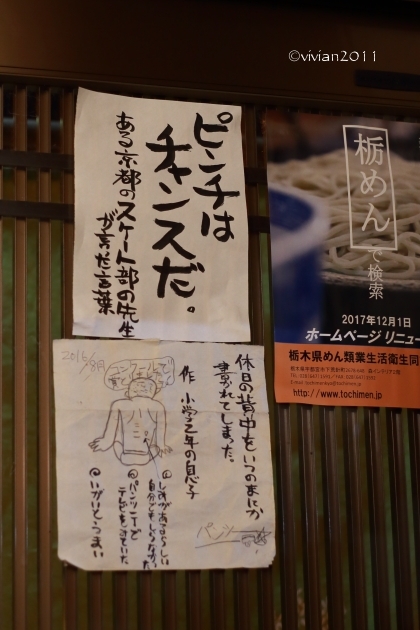 ©vivian2011
ピンチは
チャンスだ。
ある京都のスケート部の先生
が言った言葉
栃めん
で検索
2017年12月1日
ホームページ リニュー
栃木県めん類業生活衛生同
http://www.tochimen.jp
2016/8月
休日の背中をいつのまにか
書かれてしまった。
作 小学2年の息子
パンツ一
しあがあるらしい
自分でもしらなかった
パンツ一てで
テレビをみていた
いがいとうまい